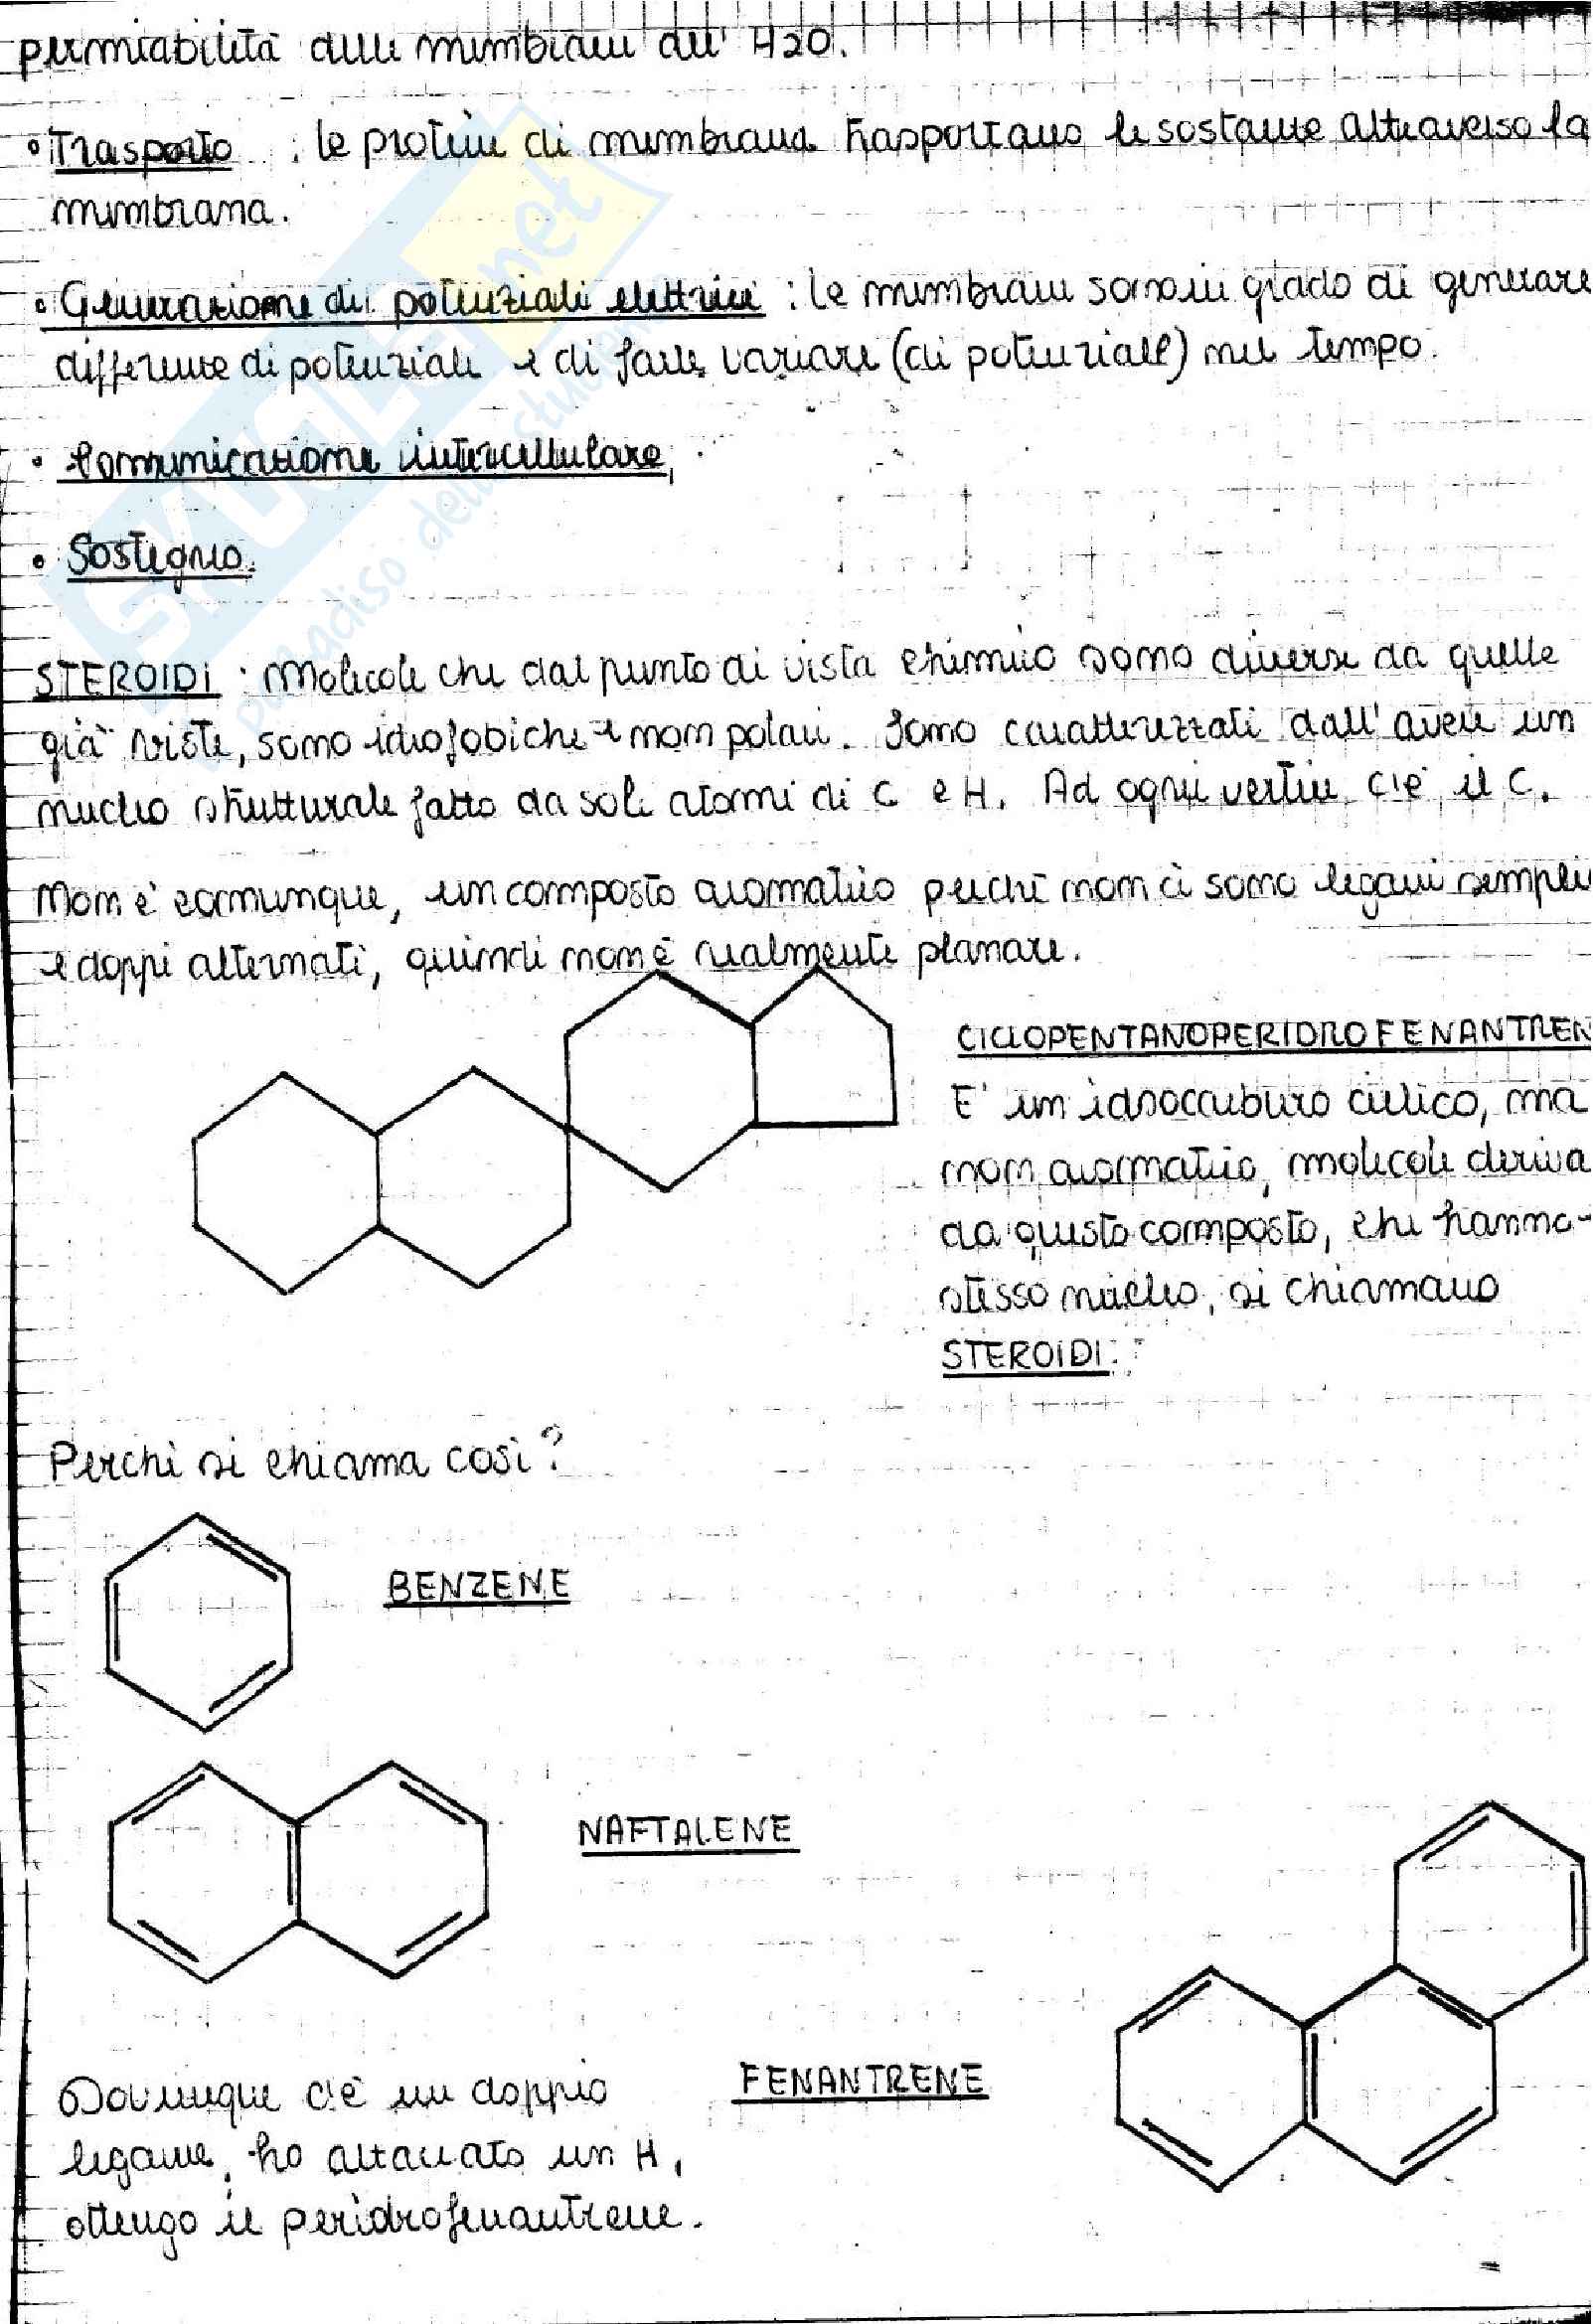 permeabilità delle membrane all' H2O.
• Trasporto : le proteine di membrana trasportano le sostanze attraverso la
membrana.
• Generazione di potenziali elettrici : le membrane sono in grado di generare
differenze di potenziale e di farle variare (di potenziale) nel tempo.
• Comunicazione intercellulare;
• Sostegno.
STEROIDI : Molecole che dal punto di vista chimico sono diverse da quelle
già viste, sono idrofobiche e non polari. Sono caratterizzati dall'avere un
nucleo strutturale fatto da soli atomi di C e H. Ad ogni vertice c'è il C.
Non è comunque, un composto aromatico perché non ci sono legami semplici
e doppi alternati, quindi non è realmente planare.
CICLOPENTANOPERIDROFENANTREN
E' un idrocarburo ciclico, ma
non aromatico, molecole deriva
da questo composto, che hanno
stesso nucleo, si chiamano
STEROIDI.
Perché si chiama così?
BENZENE
NAFTALENE
FENANTRENE
Dovunque c'è un doppio
legame, ho attaccato un H,
ottengo il peridrofenantrene.
SKUOLA.net
paradiso dello studente